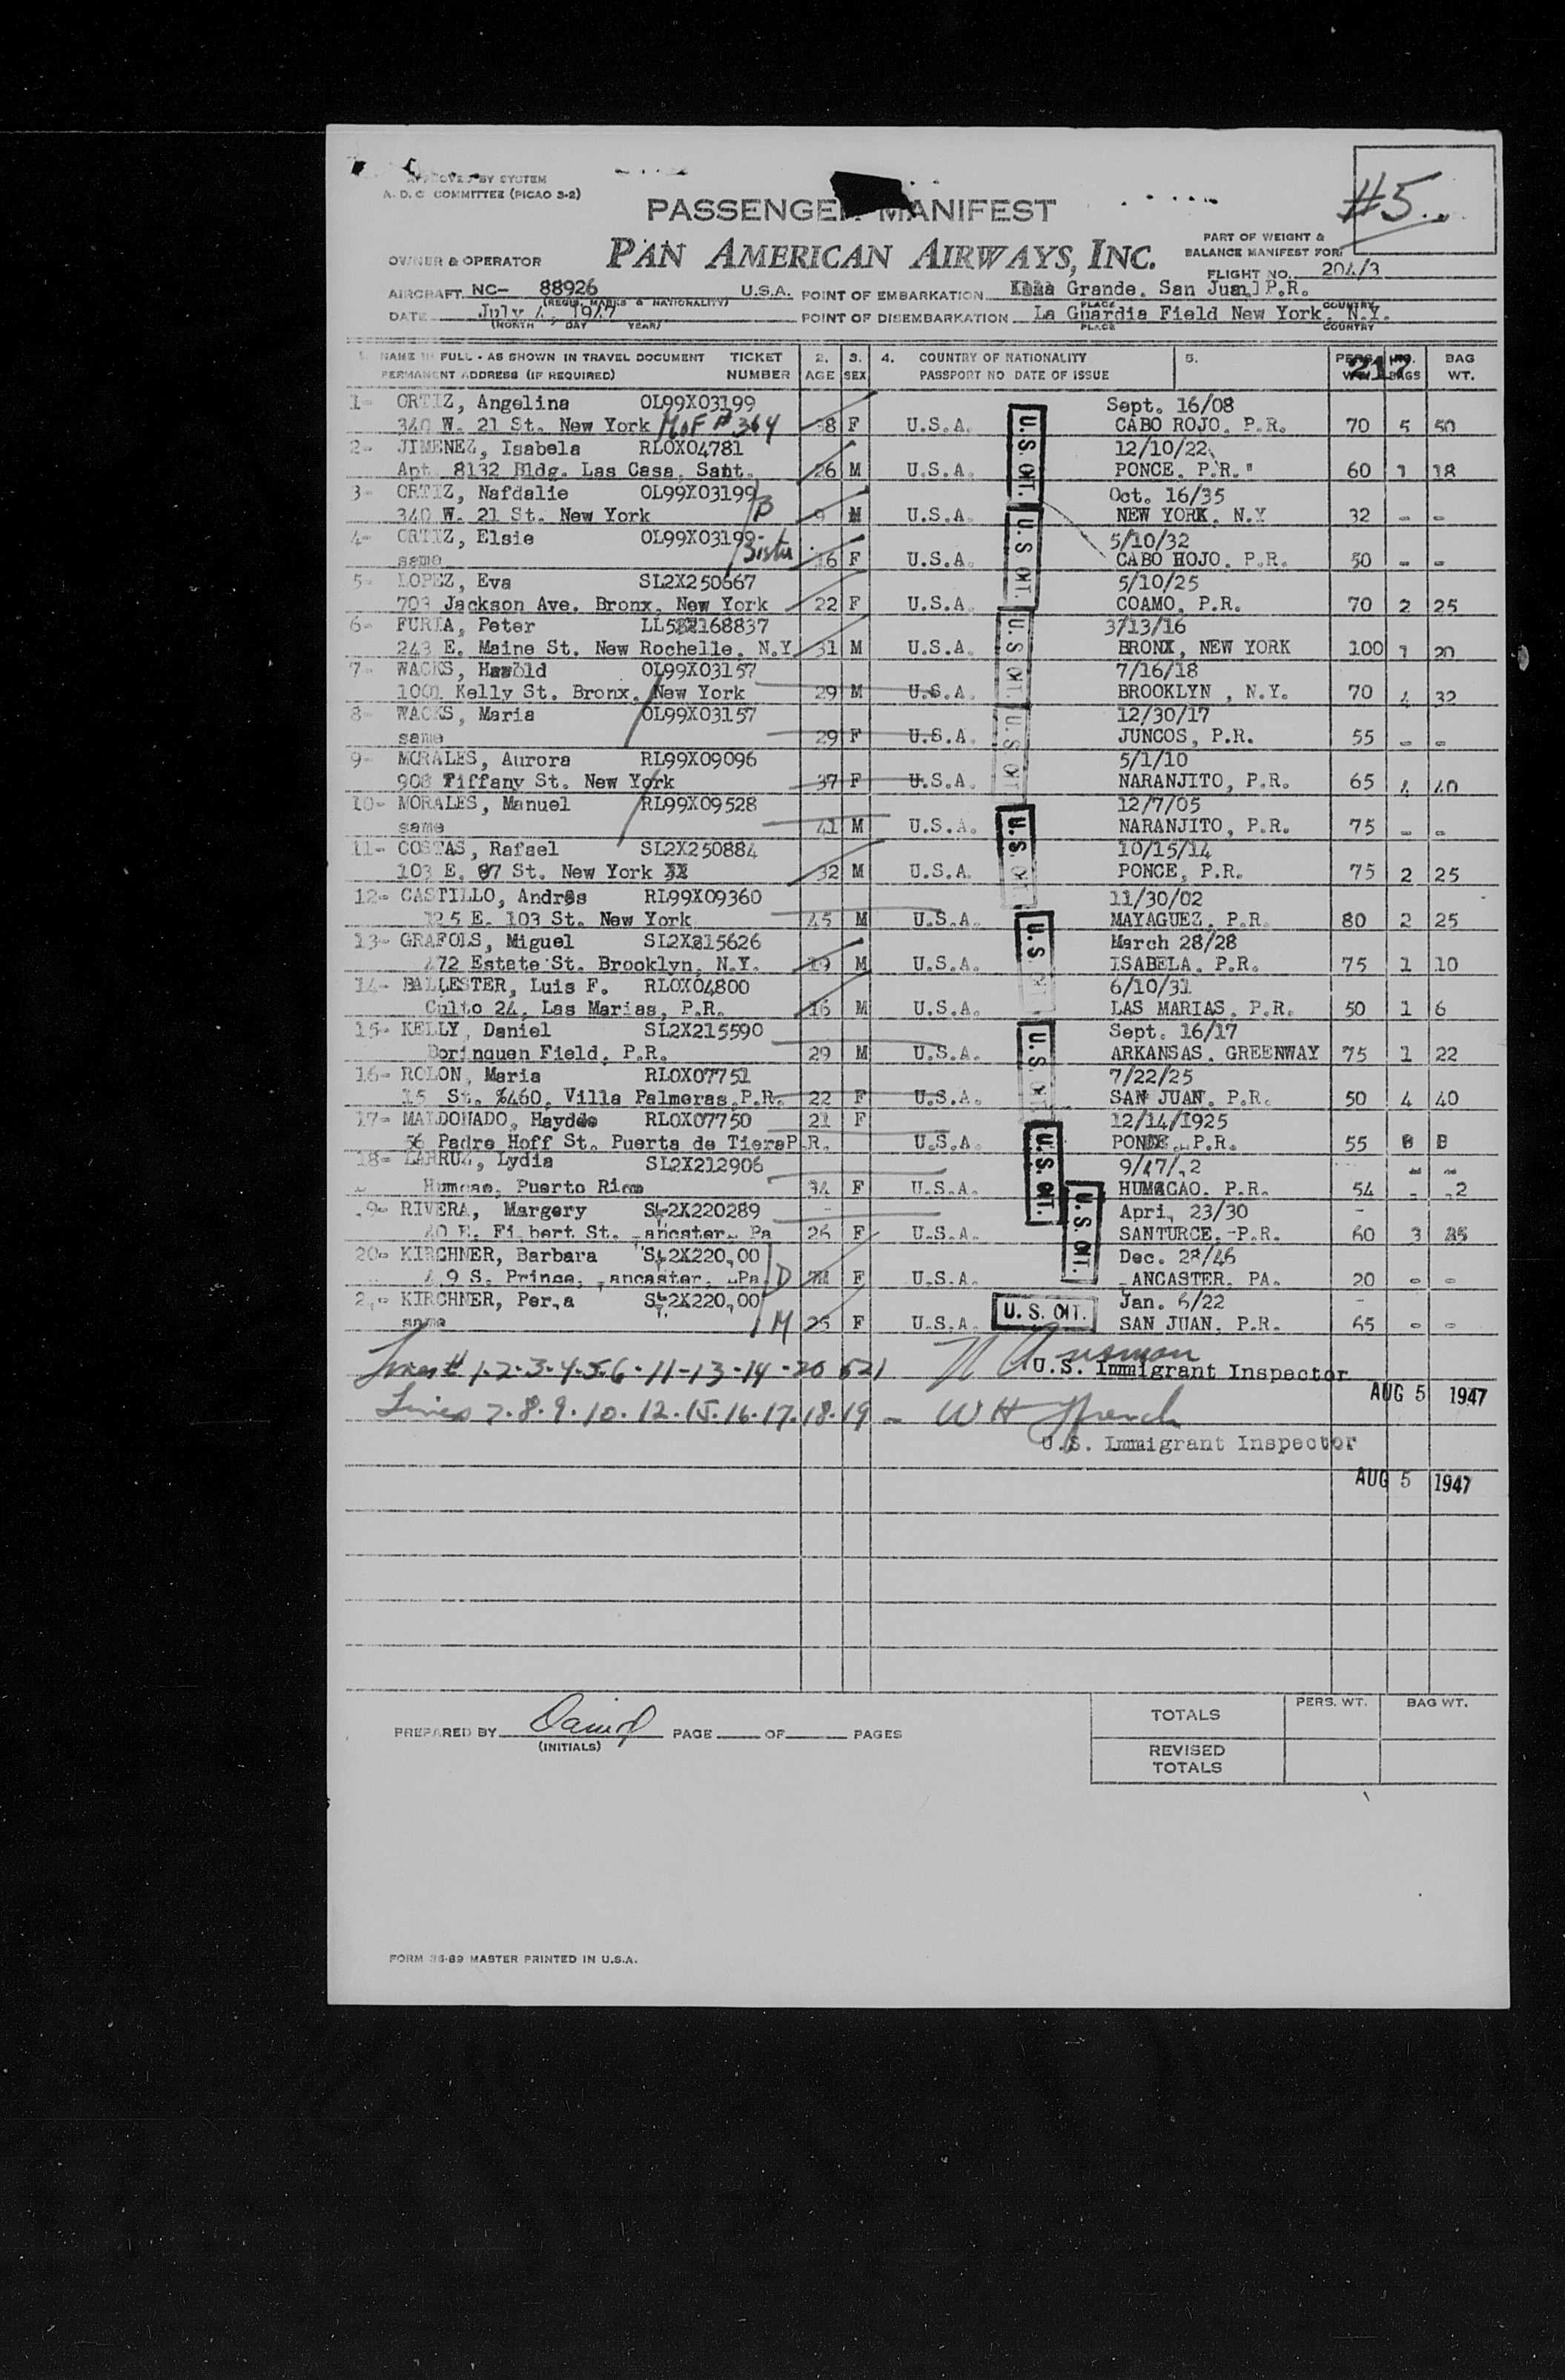 APPROVED BY SYSTEM
A. D. C. COMMITTEE (PICAO 3-2)
#5
PASSENGER MANIFEST
PART OF WEIGHT &
BALANCE MANIFEST FOR:
OWNER & OPERATOR PAN AMERICAN AIRWAYS, INC.
FLIGHT NO. 204/3
AIRCRAFT NC- 88926 U.S.A. POINT OF EMBARKATION Grande. San Juan P.R.
(REGIS. MARKS & NATIONALITY) PLACE COUNTRY
DATE July 4, 1947 POINT OF DISEMBARKATION La Guardia Field New York. N.Y.
(MONTH DAY YEAR) PLACE COUNTRY
1. NAME IN FULL - AS SHOWN IN TRAVEL DOCUMENT TICKET 2. 3. 4. COUNTRY OF NATIONALITY 5. PERS. NO. BAG
PERMANENT ADDRESS (IF REQUIRED) NUMBER AGE SEX PASSPORT NO DATE OF ISSUE WT. BAGS WT.
217
1- ORTIZ, Angelina OL99X03199 Sept. 16/08
340 W. 21 St. New York 38 F U.S.A. CABO ROJO. P.R. 70 5 50
2- JIMENEZ, Isabela RLOX04781 12/10/22
Apt. 8132 Bldg. Las Casa, Sant. 26 M U.S.A. PONCE. P.R." 60 1 18
3- ORTIZ, Nafdalie OL99X03199 B Oct. 16/35
340 W. 21 St. New York 9 M U.S.A. NEW YORK. N.Y 32 - -
4- ORTIZ, Elsie OL99X03199 Sister 5/10/32
same 16 F U.S.A. CABO HOJO. P.R. 50 - -
5- LOPEZ, Eva SL2X250667 5/10/25
703 Jackson Ave. Bronx, New York 22 F U.S.A. COAMO, P.R. 70 2 25
6- FURIA, Peter 3/13/16
243 E. Maine St. New Rochelle. N.Y 31 M U.S.A. BRONX, NEW YORK 100 1 20
7- WACKS, Harold OL99X03157 7/16/18
1001 Kelly St. Bronx, New York 29 M U.S.A. BROOKLYN , N.Y. 70 4 32
8- WACKS, Maria OL99X03157 12/30/17
same 29 F U.S.A. JUNCOS, P.R. 55 - -
9- MORALES, Aurora RL99X09096 5/1/10
908 Tiffany St. New York 37 F U.S.A. NARANJITO, P.R. 65 4 40
10- MORALES, Manuel RL99X09528 12/7/05
same 41 M U.S.A. NARANJITO, P.R. 75 - -
11- COSTAS, Rafael SL2X250884 10/15/14
103 E. 97 St. New York 32 M U.S.A. PONCE, P.R. 75 2 25
12- CASTILLO, Andres RL99X09360 11/30/02
125 E. 103 St. New York 45 M U.S.A. MAYAGUEZ. P.R. 80 2 25
13- GRAFOLS, Miguel SL2X215626 March 28/28
472 Estate St. Brooklyn, N.Y. 19 M U.S.A. ISABELA. P.R. 75 1 10
14- BALLESTER, Luis F. RLOX04800 6/10/31
Culto 24, Las Marias, P.R. 16 M U.S.A. LAS MARIAS. P.R. 50 1 6
15- KELLY, Daniel SL2X215590 Sept. 16/17
Borinquen Field, P.R. 29 M U.S.A. ARKANSAS. GREENWAY 75 1 22
16- ROLON, Maria RLOX07751 7/22/25
15 St. %460, Villa Palmeras, P.R. 22 F U.S.A. SAN JUAN. P.R. 50 4 40
17- MALDONADO, Haydee RLOX07750 21 F 12/14/1925
56 Padre Hoff St. Puerta de Tiera P.R. U.S.A. PONCE. P.R. 55 B B
18- LARRUZ, Lydia SL2X212906
Humcao, Puerto Rico 34 F U.S.A. HUMACAO. P.R. 54
RIVERA, Margery SL2X220289 Apri. 23/30
26 F U.S.A. SANTURCE. P.R. 60 3 25
20- KIRCHNER, Barbara D Dec. 28/46
S. Prince, ancaster, Pa F U.S.A. ANCASTER, PA. 20 - -
KIRCHNER, M Jan. 6/22
same 25 F U.S.A. SAN JUAN. P.R. 65 - -
U.S. CIT.
U.S. CIT.
U.S. CIT.
U.S. CIT.
U.S. CIT.
U.S. CIT.
U.S. CIT.
U.S. CIT.
U.S. CIT.
U. S. CIT.
Lines # 1-2-3-4-5-6-11-13-14-20 &21
U.S. Immigrant Inspector
AUG 5 1947
Lines 7.8.9.10.12.15.16.17.18.19 - W H French
U.S. Immigrant Inspector
AUG 5 1947
PREPARED BY PAGE OF PAGES
(INITIALS)
PERS. WT. BAG WT.
TOTALS
REVISED
TOTALS
FORM 36-89 MASTER PRINTED IN U.S.A.